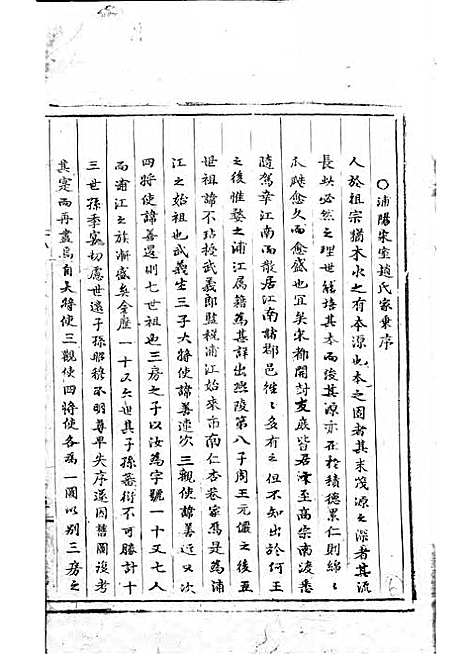 ○浦陽宋室趙氏家乘序
人於祖宗猶木水之有本源也本之固者其末茂源之深者其流
長此必然之理世能培其本而浚其源亦在於積德累仁則綿〻
瓜瓞愈久而愈盛也宜矣宋都開封友族皆居滓至高宗南渡悉
隨駕幸江南而散居江南諸郡邑徃〻多有之但不知出於何王
之後惟婺之浦江属籍為甚詳出熙陵第八子周王元儼之後五
世祖諱不玷授武義郎監稅浦江始來市南仁杏巷家焉是為浦
江之始祖也武義生三子大將使諱善連次三觀使諱善近又次
四將使諱善還則七世祖三房之子以汝為字號一十又七人
而浦江之族漸盛矣今歷一十又六世其子孫蕃衍不可勝計十
三世孫季寬切慮世遠子孫昭穆不明尊卑失序遂因舊圖復考
其寔而再畫焉自大將使三觀使四將使各為一圖以别三房之